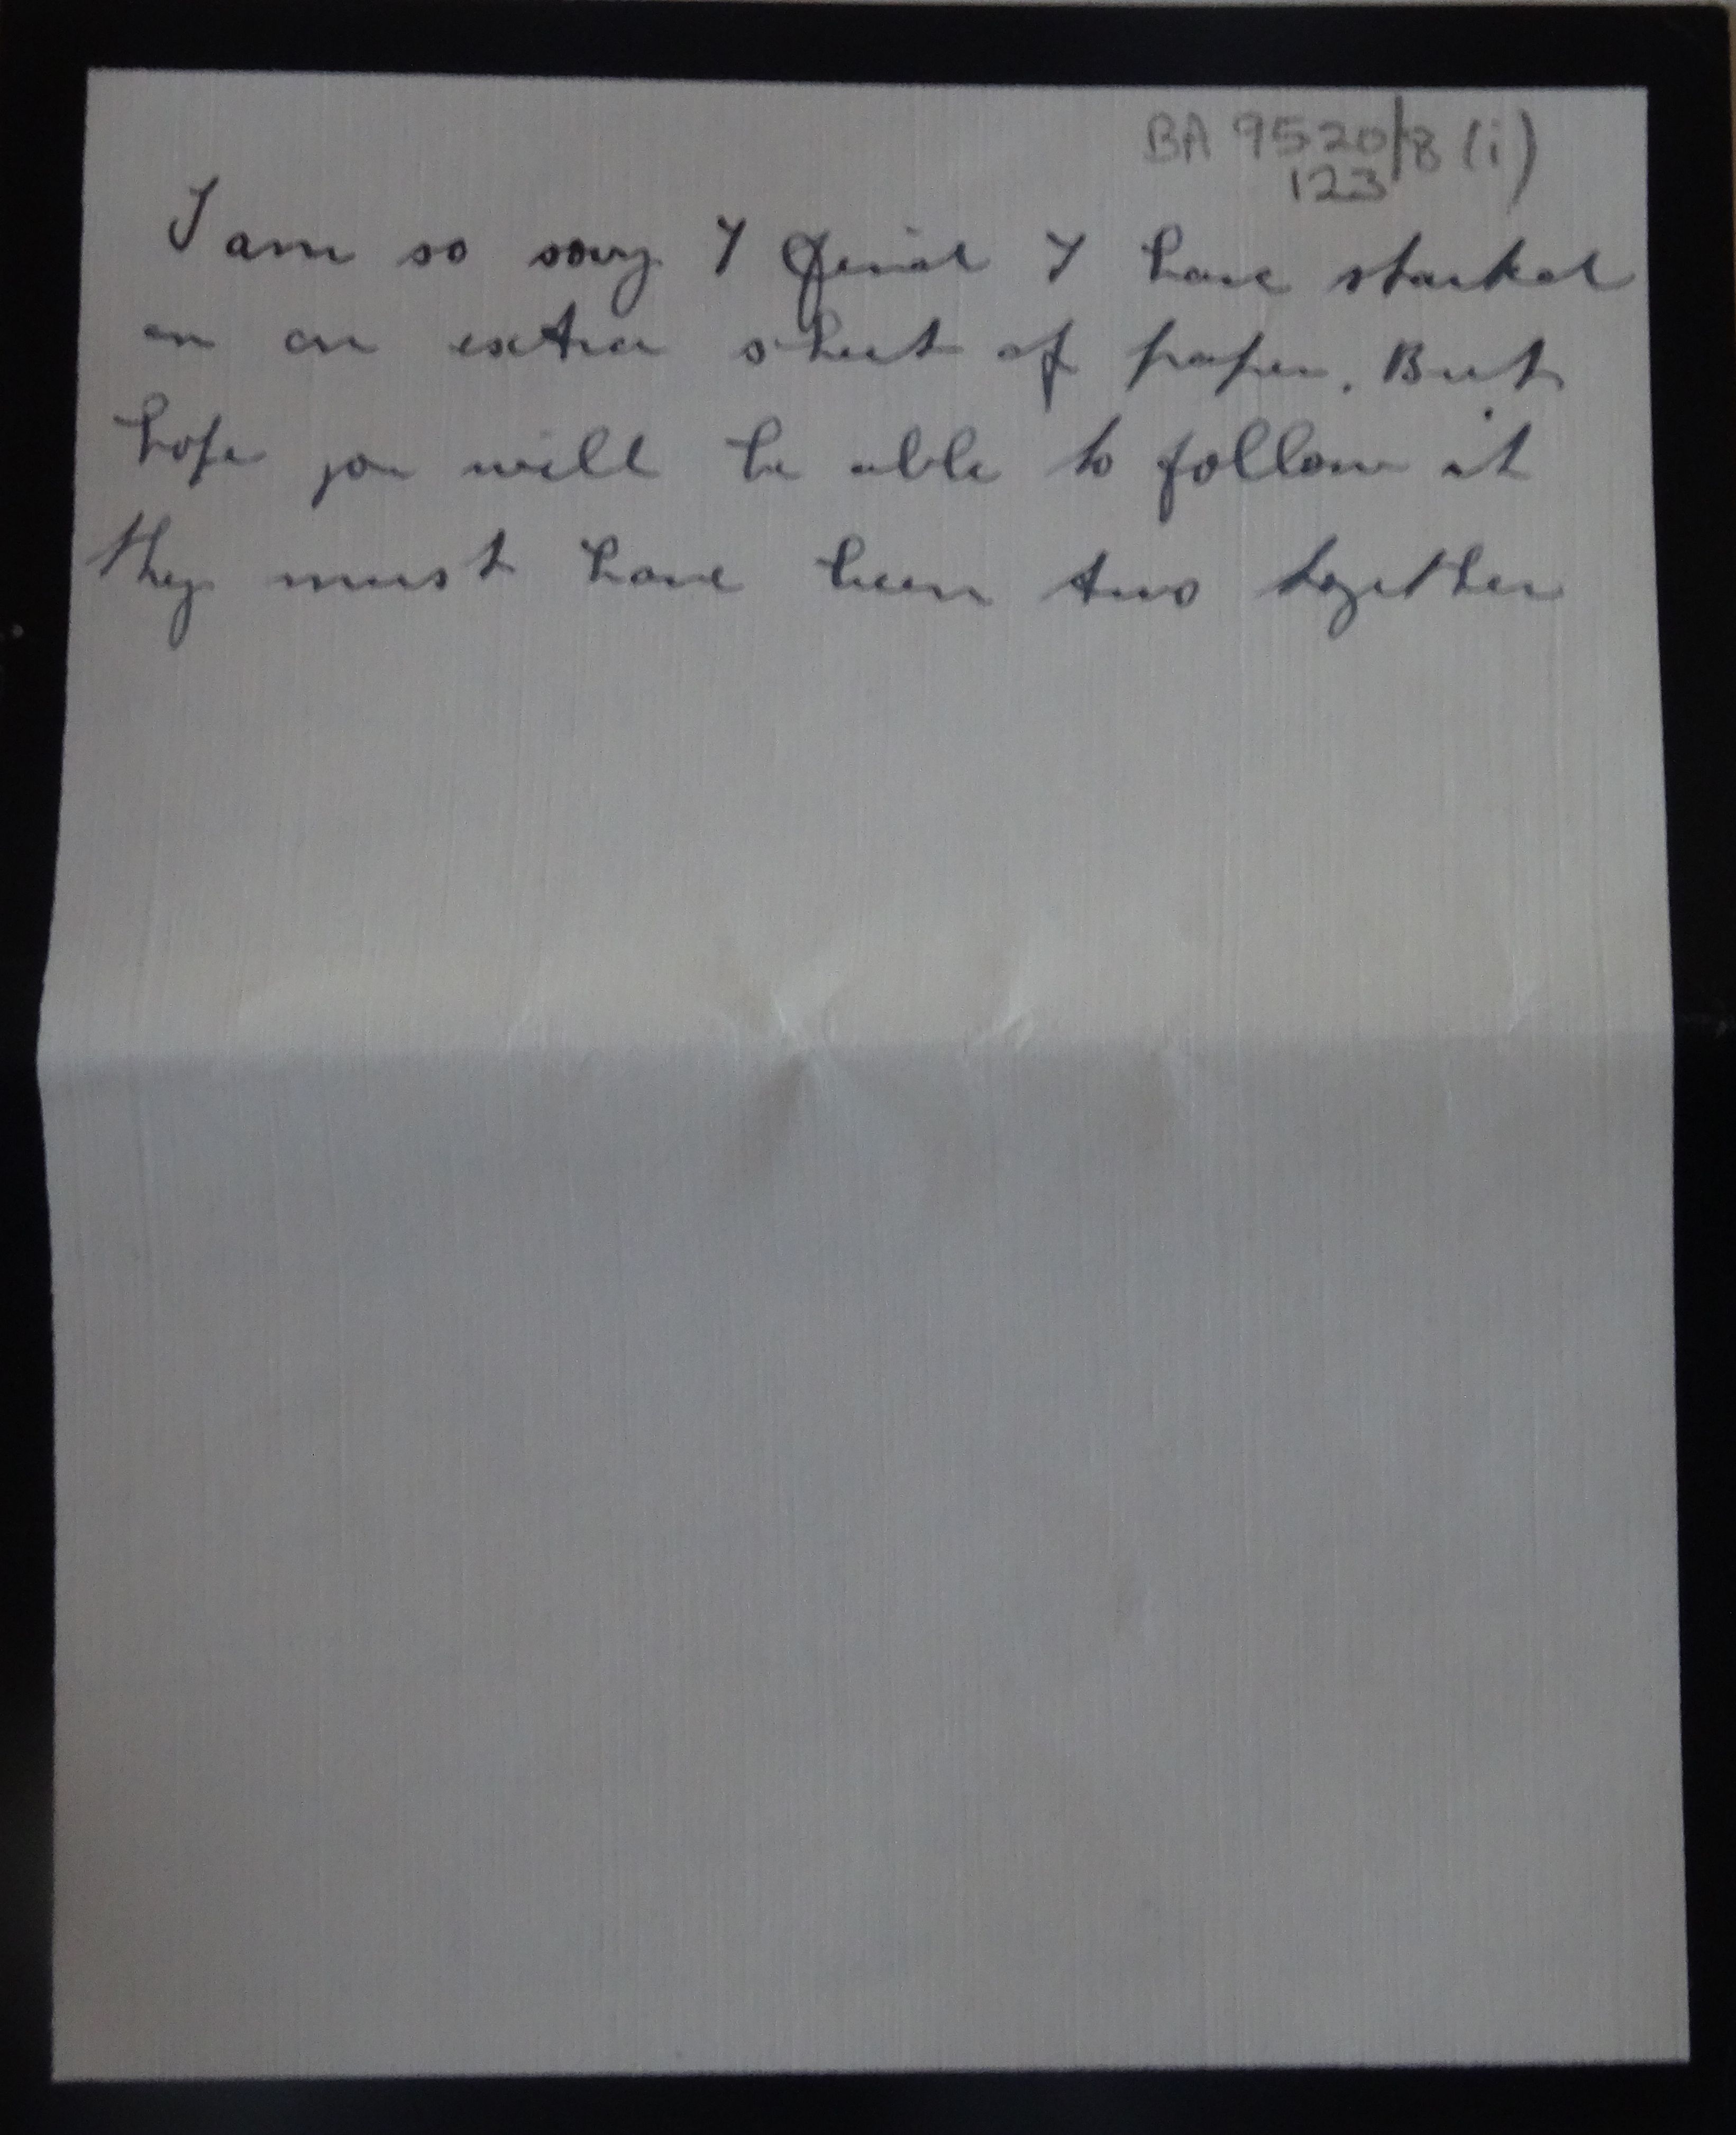 BA 9520/8 (i)
123
I am so sorry I find I have started
on an extra sheet of paper. But
hope you will be able to follow it
they must have been two together